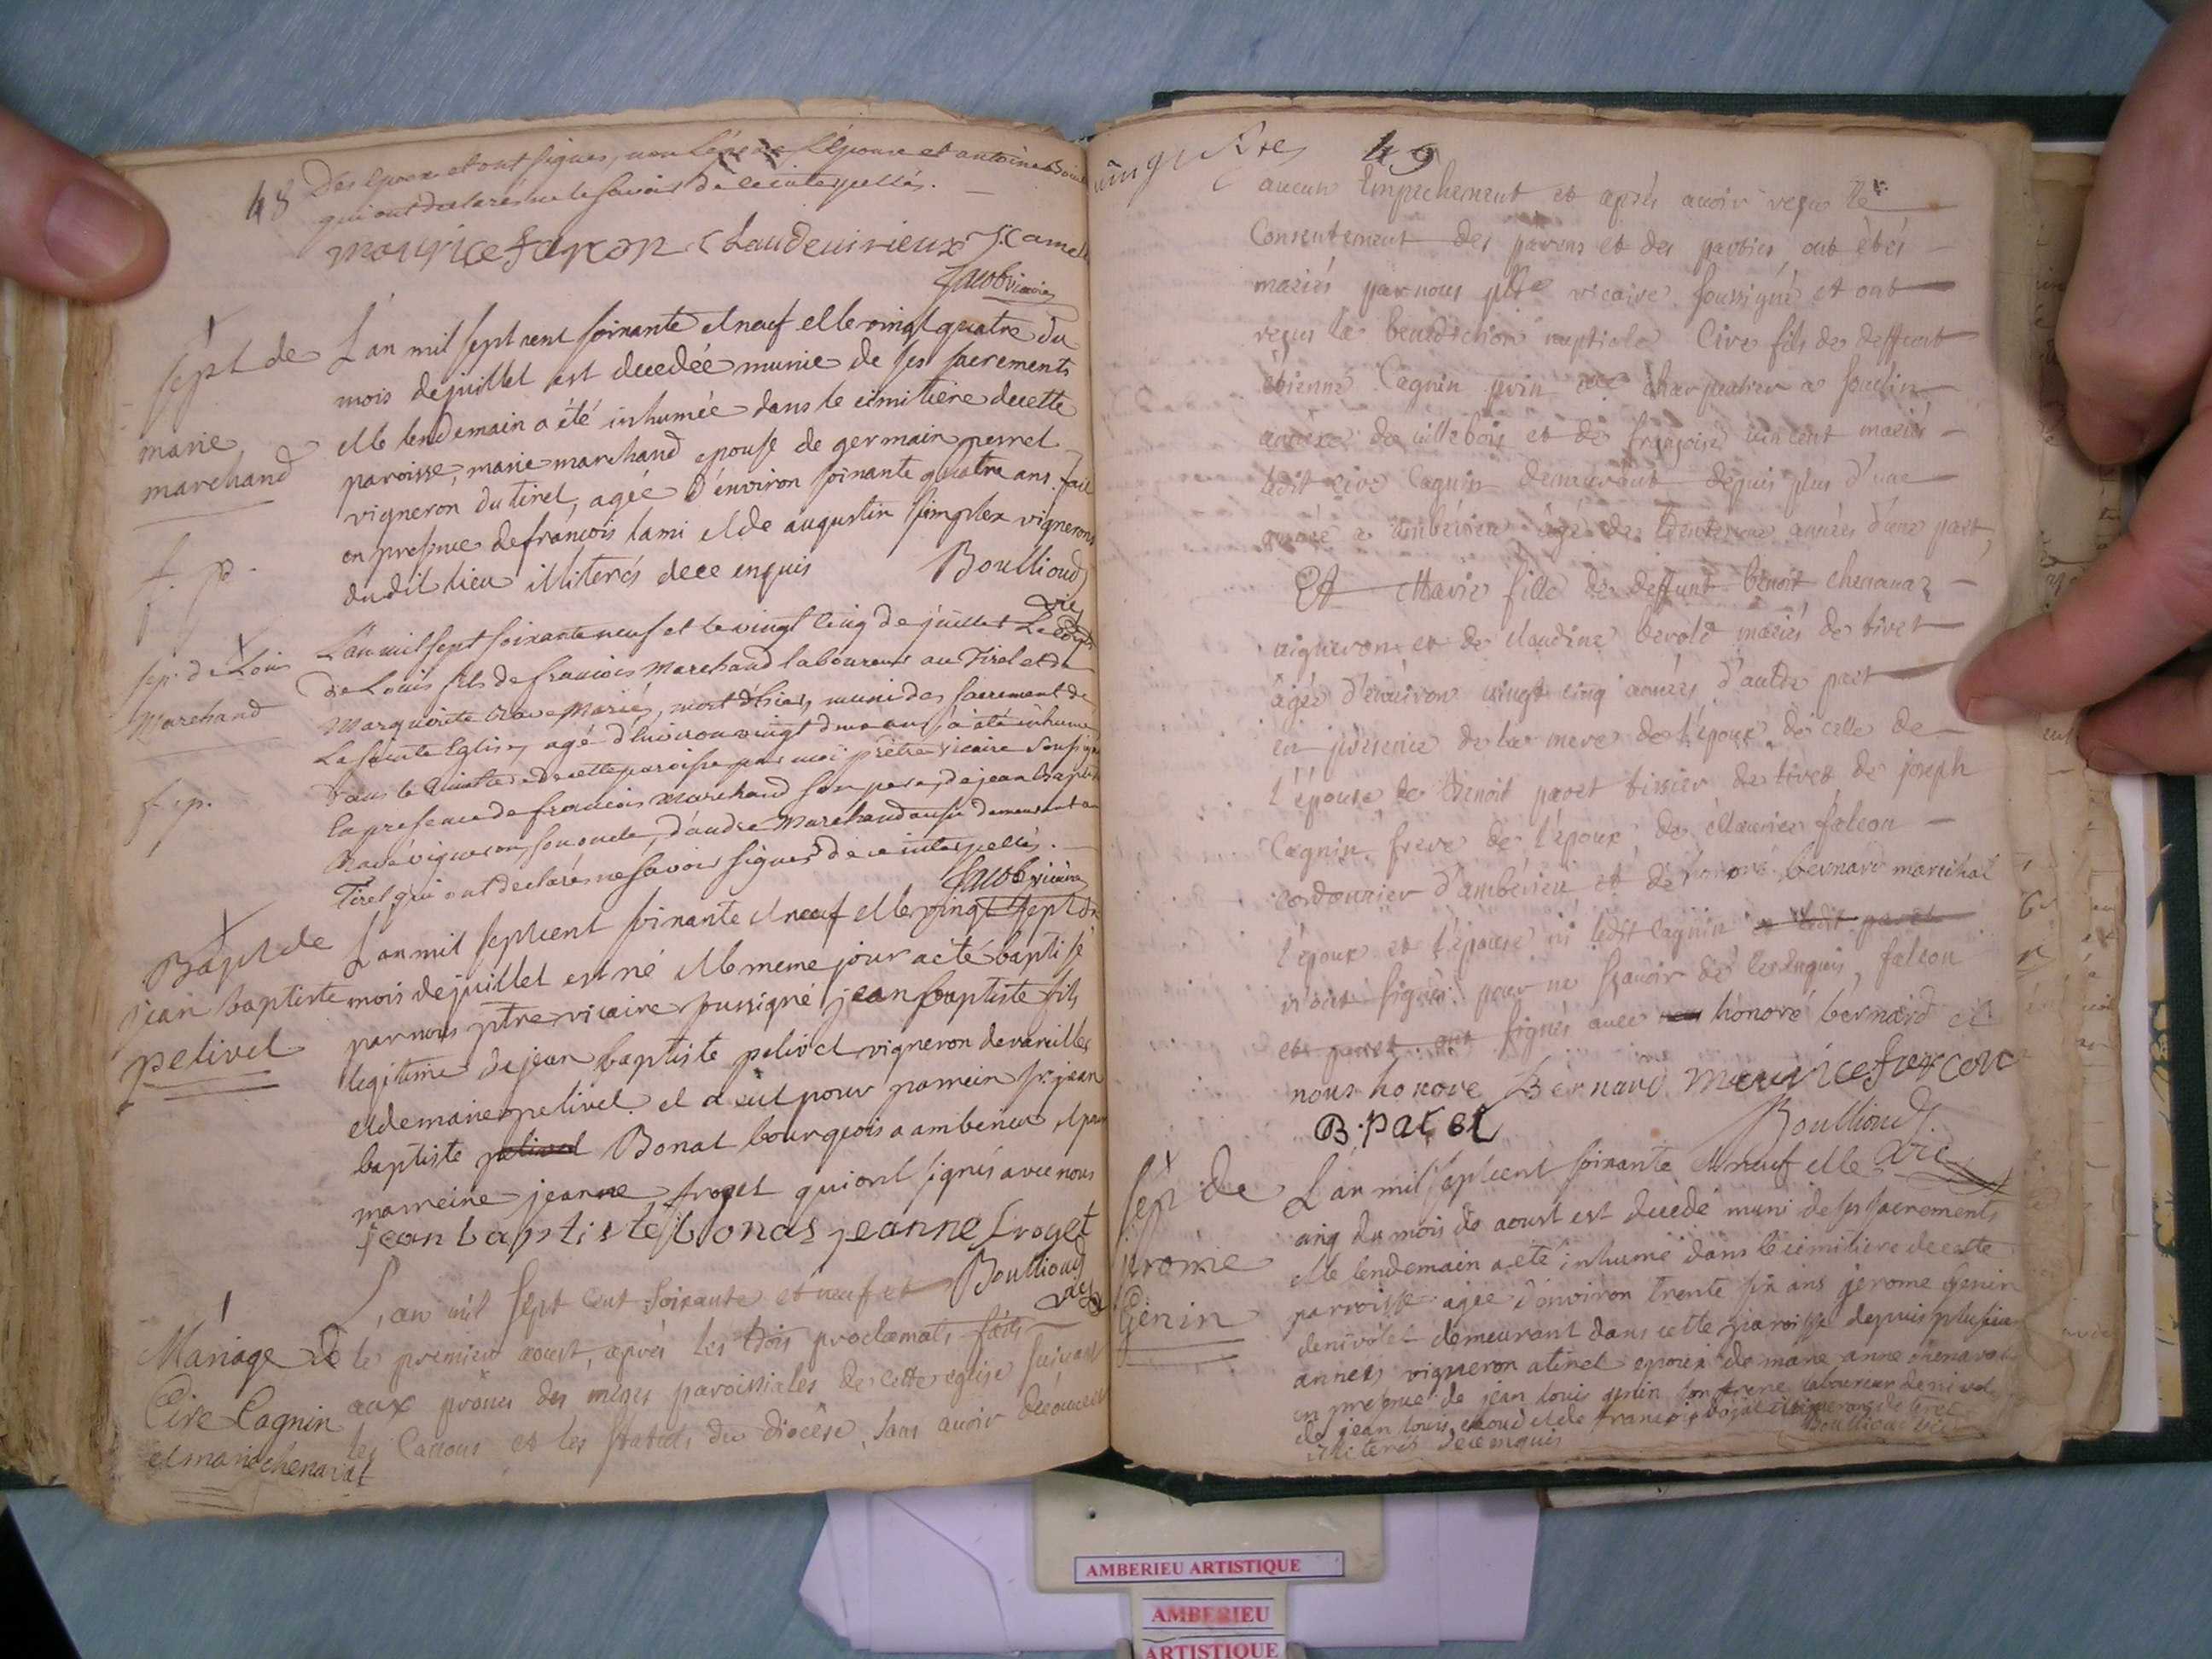 48
Des epoux et ont signés, non l'épouse et antoine
qui ont declarés ne le savoir de ce interpellés.
maurice falcon Claude
Jacob vicaire
sept de
marie
marchand
L'an mil sept cent soixante et neuf et le vingt quatre du
mois de juillet est decedée munie de ses sacrements
et le lendemain a été inhumée dans le cimitiere de cette
paroisse, marie marchand epouse de germain perret
vigneron du tiret, agée d'environ soixante quatre ans, fait
en presence de francois lami et de augustin simplex vignerons
du dit lieu illiterés de ce enquis Boullioud
vic
sep. de Loüis
Marchand
L'an mil sept soixante neuf et le vingt cinq de juillet Le corps
de Louis fils de francois Marchand laboureur au Tiret et de
Marguerite Marié, mort d'hier, muni des sacrement de
La sainte Eglise, agé d'environ vingt deux ans, a été inhumé
Dans le cimitiere de cette paroisse par moi prêtre vicaire soussigné
En presence de francois Marchand son pere, de jean baptiste
vigneron, son oncle, d'andré Marchand aussi demeurant au
Tiret qui ont declarés ne savoir signer de ce interpellés.
Jacob vicaire
Bapt de
jean baptiste
pelivet
L'an mil sept cent soixante et neuf et le vingt sept du
mois de juillet est né et le meme jour a été baptisé
par nous ptre vicaire soussigné jean baptiste fils
legitime de jean baptiste pelivet vigneron de vareilles
et de marie pelivet et a eut pour parrein sr. jean
baptiste Bonat bourgeois a amberieu, et pour
marreine jeanne froget qui ont signés avec nous
jean baptiste bonas jeanne froget
Boullioud
vic
Mariage de
Cire Cagnin
et marie chenavat
L'an mil sept cent soixante et neuf et
le premier aoust, aprés les trois proclamats faits
aux prônes des méses paroissiales de cette eglise suivant
les Canons et les statuts du diocèse, sans avoir découvert
49
aucun Empechement et aprés avoir reçus le
Consentement des parens et des parties, ont étés
mariés par nous ptre vicaire soussigné et ont
reçus la benediction nuptiale Cire fils de deffunt
étienne Cagnin charpentier a souclin
annexe de villebois et de françoise vincent mariés
ledit cire Cagnin demeurant depuis plus d'une
année a ambérieu agé de trente années d'une part,
Et Marie fille de deffunt benoit chenavaz
vigneron et de claudine mariés de tiret
âgée d'environ vingt cinq années d'autre part
en présence de la mere de l'époux de celle de
l'épouse de Benoit paret tissier de tiret de joseph
Cagnin frere de l'époux, de Maurice falcon
cordonnier d'amberieu et de honoré bernard maréchal
l'époux et l'épouse ni ledit Cagnin et ledit paret
n'ont signés pour ne sçavoir de ce enquis, falcon
et paret ont signés avec honoré bernard et
nous honore Bernard maurice falcon
B. paret
Boullioud
vic
sep de
jerome
Genin
L'an mil sept cent soixante et neuf et le
cinq du mois de aoust est decedé muni de ses sacrements
et le lendemain a eté inhumé dans le cimitiere de cette
parroisse agée d'environ trente six ans jerome Genin
de nivolet demeurant dans cette paroisse depuis plusieurs
années vigneron a tiret epoux de marie anne chenavat
en presence de jean louis genin son frere laboureur de nivolet
de jean louis et de francois vignerons de tiret
illiterés de ce enquis Boullioud vic
AMBERIEU ARTISTIQUE
AMBERIEU
ARTISTIQUE